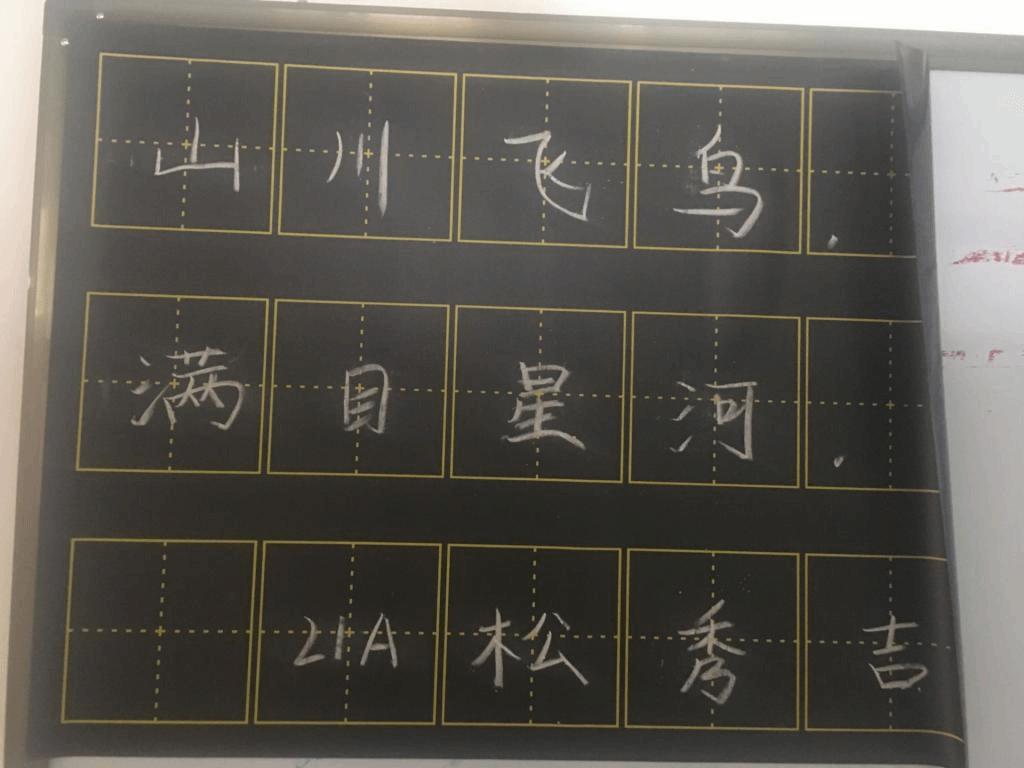 山川飞鸟,
满目星河,
21A松秀吉